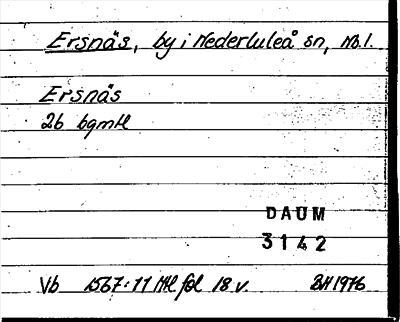 Ersnäs, by i Nederluleå sn, Nb.l.
Ersnäs
26 bgmtl
DAUM
3142
Vb 1567:11 Mtl fol 18 v. BH 1976